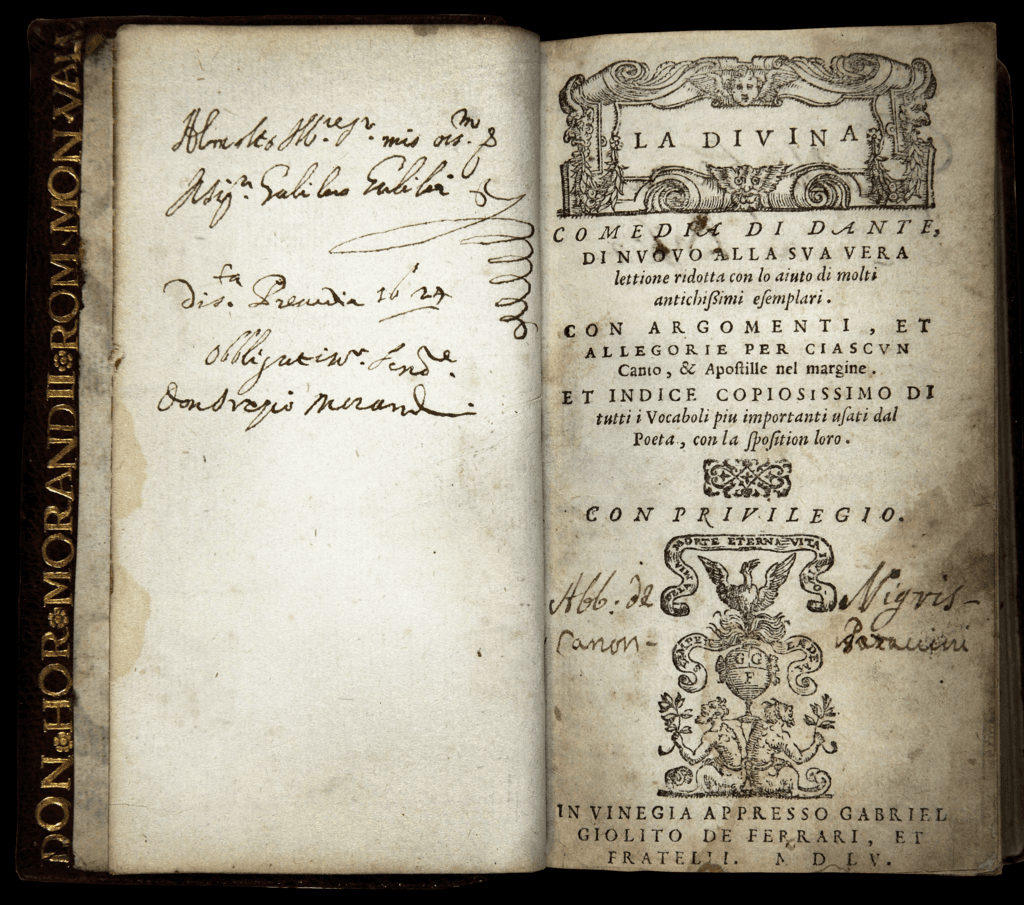 DON HOR MORANDII ROM MON VAL
Galileo Galilei
1624
obbligatiss.
Don Orazio Morand
LA DIVINA
COMEDIA DI DANTE,
DI NVOVO ALLA SVA VERA
lettione ridotta con lo aiuto di molti
antichißimi esemplari.
CON ARGOMENTI, ET
ALLEGORIE PER CIASCVN
Canto, & Apostille nel margine.
ET INDICE COPIOSISSIMO DI
tutti i Vocaboli piu importanti usati dal
Poeta, con la sposition loro.
CON PRIVILEGIO.
MORTE ETERNA VITA I
Abb: de Nigris-
Canon-
SEMPER EADEM
G G
F
IN VINEGIA APPRESSO GABRIEL
GIOLITO DE FERRARI, ET
FRATELLI. M D L V.